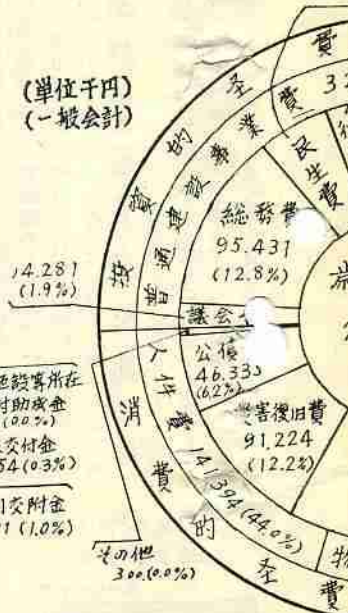 (単位千円)
(一般会計)
投資的経費
普通建設事業費 32
民生費
総務費
95.431
(12.8%)
14.281
(1.9%)
議会
公債
46.33
(6.2%)
害復旧費
91.224
(12.2%)
人件費 141394 (44.0%)
消費的経費
物
所在
村助成金
(0.0%)
交付金
54(0.3%)
交附金
1 (1.0%)
その他
300.(0.0%)
歳